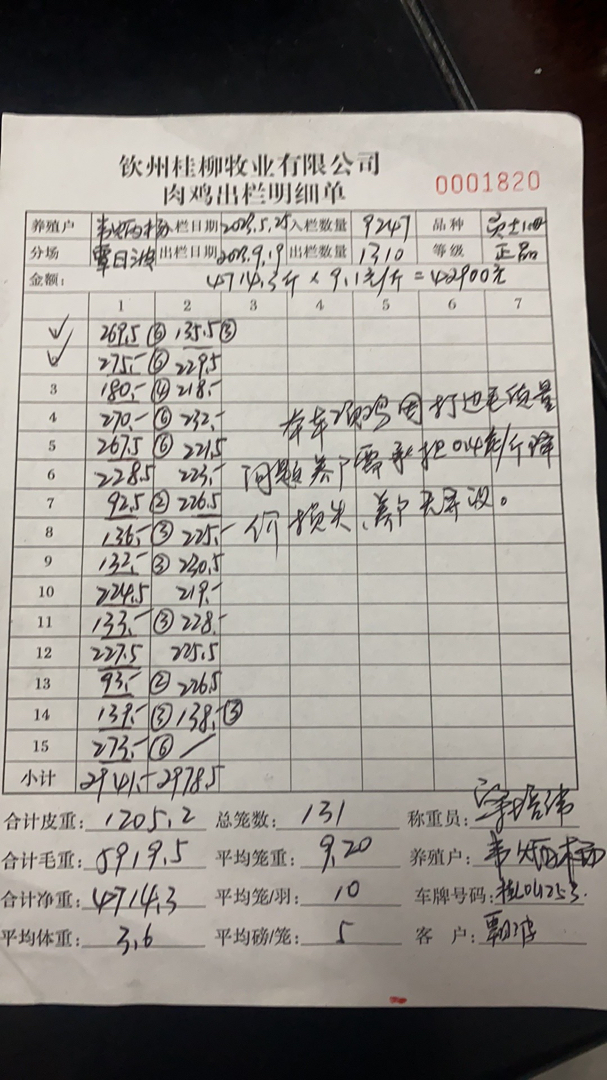 钦州桂柳牧业有限公司
肉鸡出栏明细单
0001820
养殖户 入栏日期 2023.5.25 入栏数量 9247 品种
分场 覃日波 出栏日期 2023.9.19 出栏数量 1310 等级 正品
金额: 4714.3斤 × 9.1元/斤 = 42900元
1 2 3 4 5 6 7
269.5 ⑥ 135.5 ③
275.- ⑥ 229.5
3 180.- ④ 218.-
4 270.- ⑥ 232.- 本车项鸡因打边毛质量
5 267.5 ⑥ 221.5 问题养户需承担0.4元/斤降
6 228.5 223.-
7 92.5 ② 226.5 价损失,养户无异议。
8 136.- ③ 225.-
9 132.- ③ 230.5
10 224.5 219.-
11 133.- ③ 228.-
12 227.5 225.5
13 93.- ② 226.5
14 139.- ③ 138.- ③
15 273.- ⑥ /
小计 2941.- 2978.5
合计皮重: 1205.2 总笼数: 131 称重员:
合计毛重: 5919.5 平均笼重: 9.20 养殖户:
合计净重: 4714.3 平均笼/羽: 10 车牌号码:
平均体重: 3.6 平均磅/笼: 5 客户: